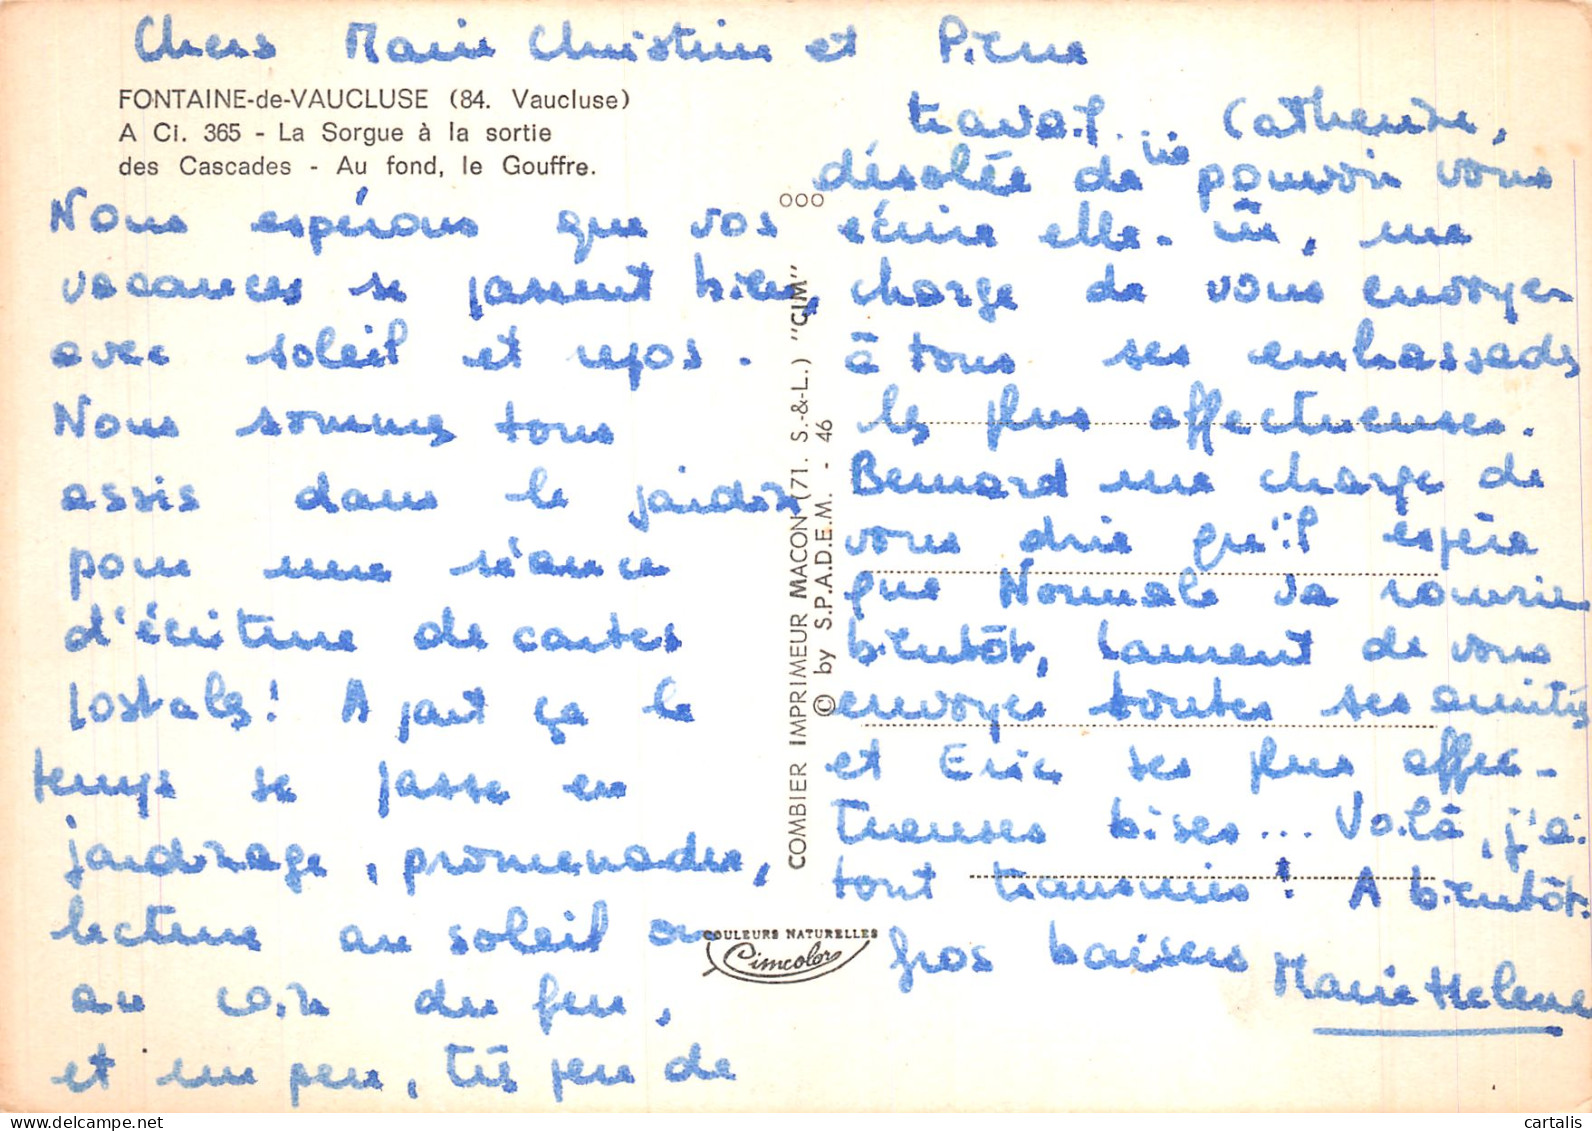 Chers Marie Christine et Pierre
FONTAINE-de-VAUCLUSE (84. Vaucluse)
A Ci. 365 - La Sorgue à la sortie
des Cascades - Au fond, le Gouffre.
Nous espérons que vos
vacances se passent bien,
avec soleil et repos.
Nous sommes tous
assis dans le jardin
pour une séance
d'écriture de cartes
postales! A part ça le
temps se passe en
jardinage, promenades,
lecture au soleil ou
au coin du feu,
et un peu, très peu de
travail... Catherine,
désolée de ne pouvoir vous
écrire elle-même, me
charge de vous envoyer
à tous ses embrassades
les plus affectueuses.
Bernard me charge de
vous dire qu'il espère
que Normale va rouvrir
bientôt, Laurent de vous
envoyer toutes ses amitiés
et Eric ses plus affec-
tueuses bises... Voilà, j'ai
tout transmis! A bientôt.
gros baisers
Marie Helene
COMBIER IMPRIMEUR MACON (71. S.-&-L.) "CIM"
© by S.P.A.D.E.M. - 46
COULEURS NATURELLES
Cimcolor
cartalis